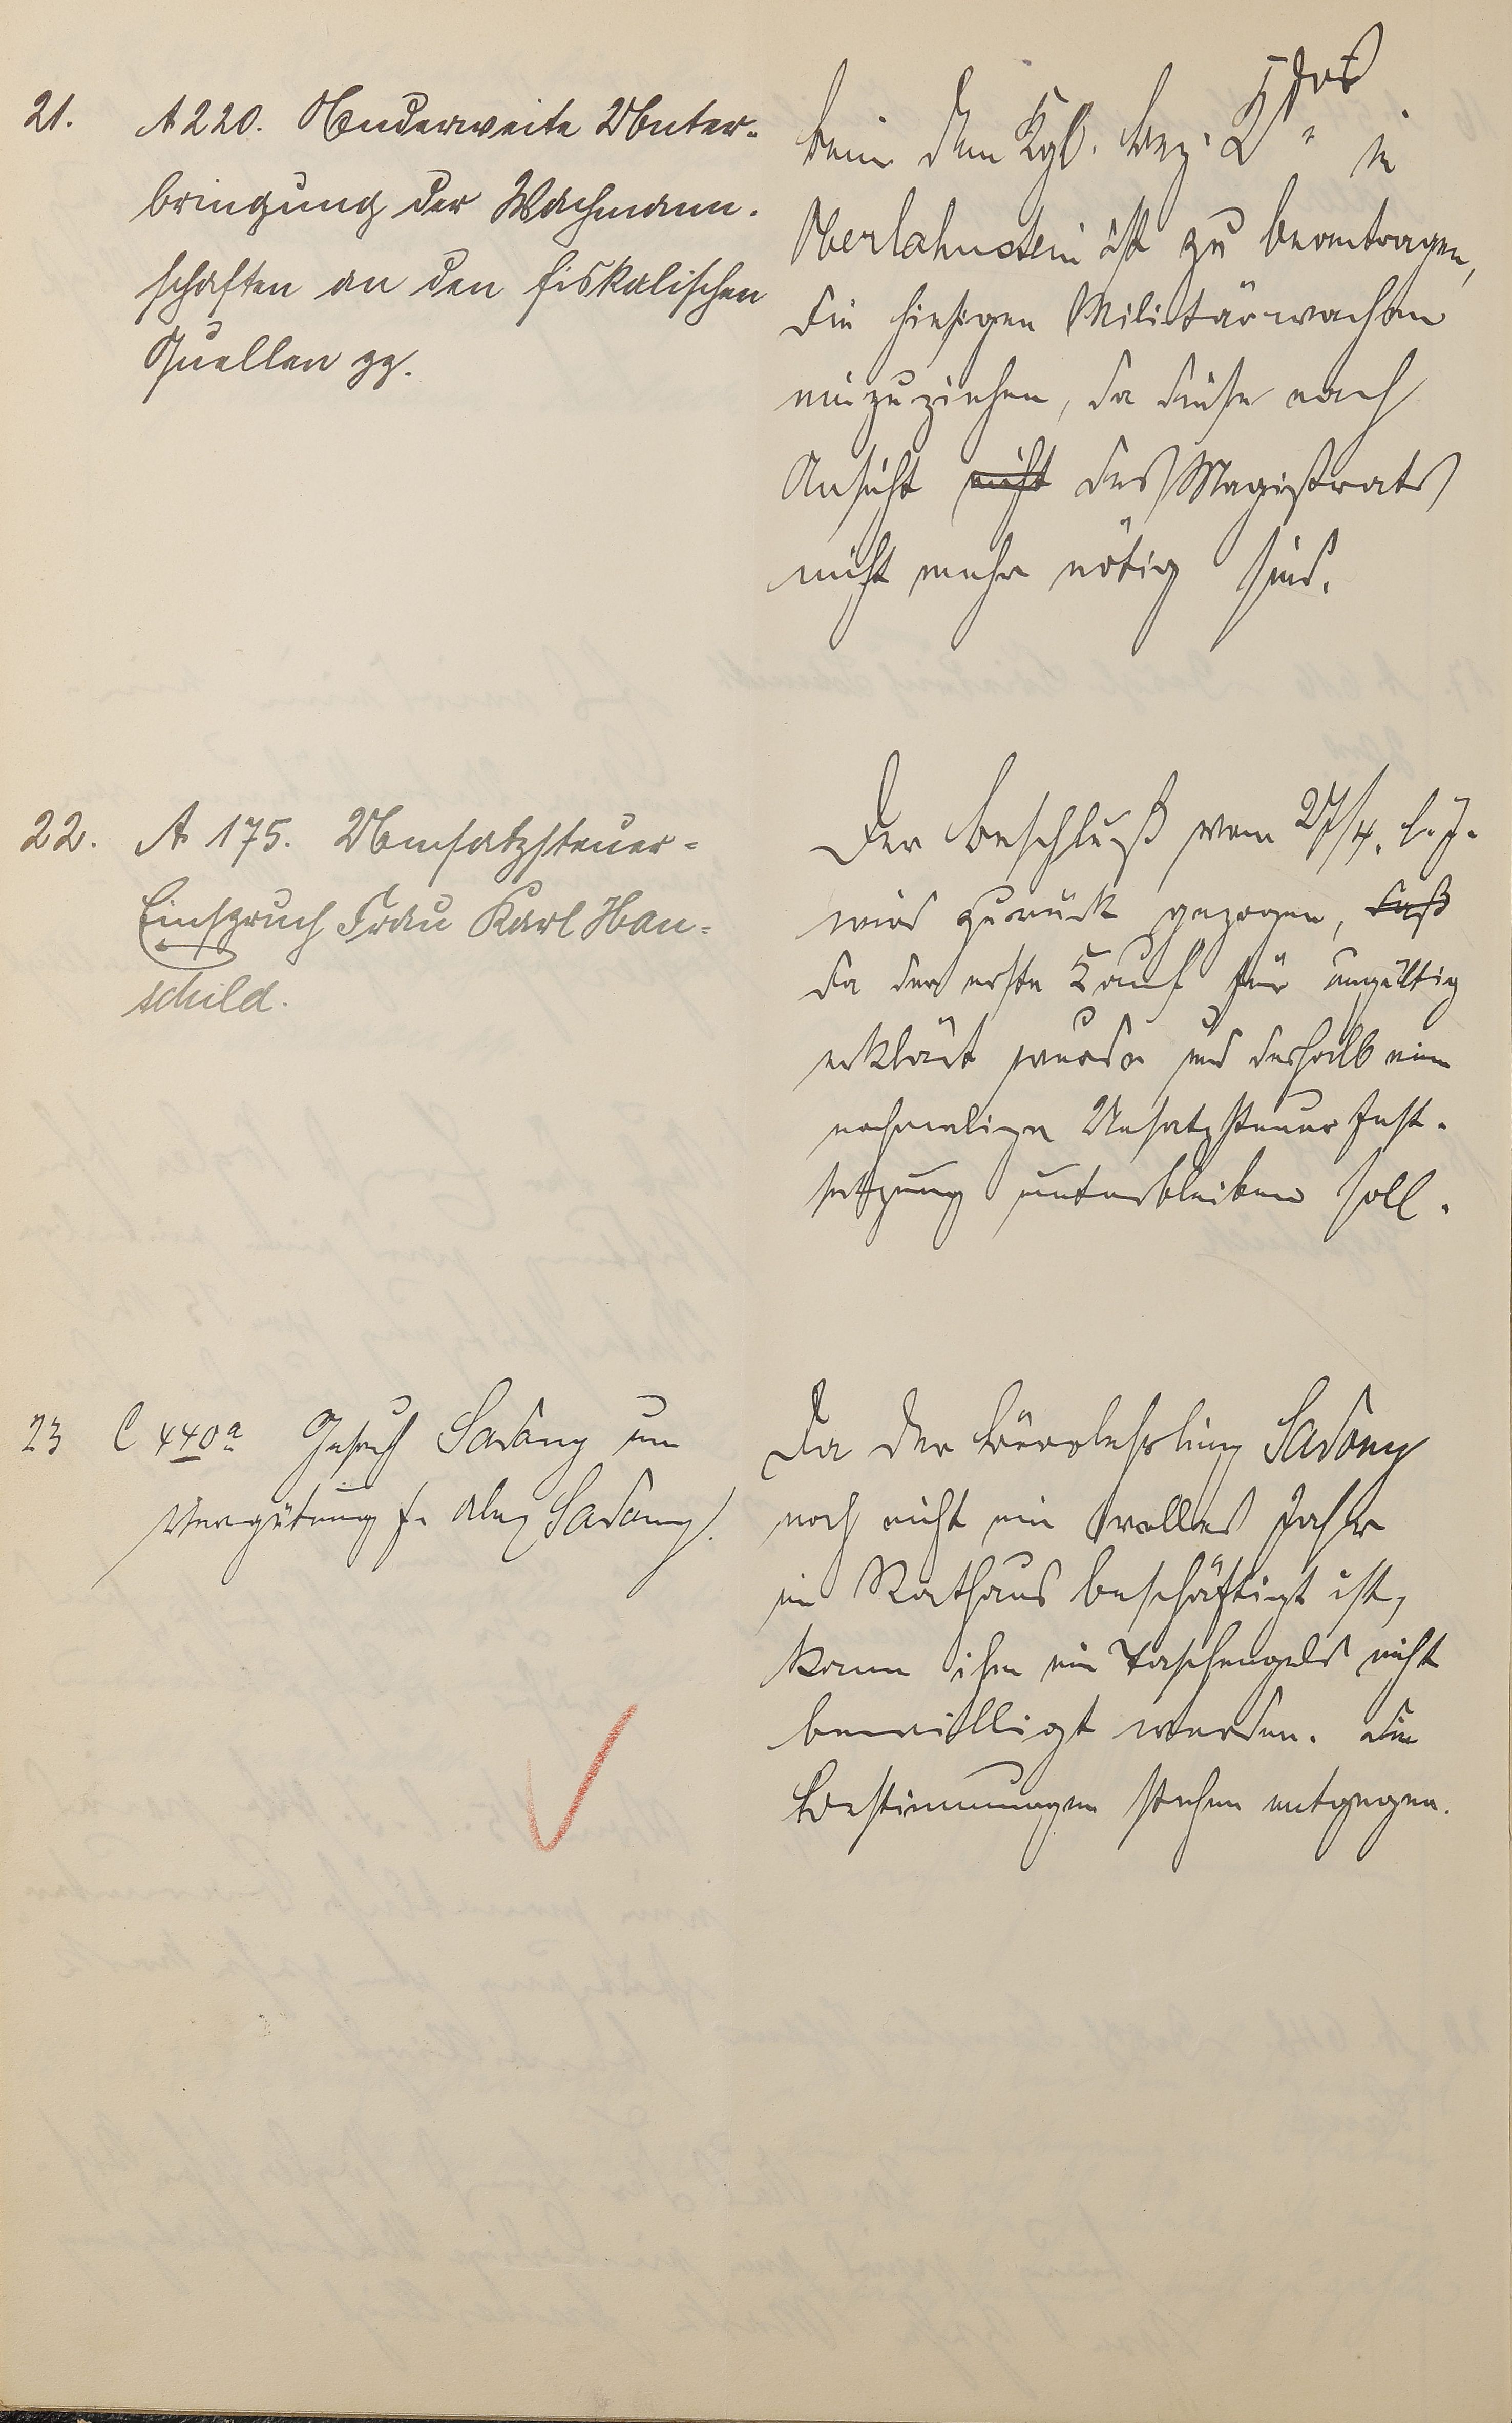 21. A 220. Anderweite Unter-
bringung der Wachmann-
schaften an den fiskalischen
Quellen pp.
beim dem Kgl. Bez. K
in
Oberlahnstein ist zu beantragen,
die hiesigen Militärwachen
einzuziehen, da diese nach
Ansicht nicht des Magistrats
nicht mehr nötig sind.
22. A 175. Umsatzsteuer-
Einspruch Frau Karl Han-
schild.
Der Beschluß vom 27/4. l. J.
wird zurück gezogen, daß
da der erste Kauf für ungültig
erklärt wurde und deshalb eine
nochmalige Umsatzsteuer Fest-
setzung unterbleiben soll.
23 C 440a Gesuch Sadony um
Vergütung f. Alex Sadony.
Da der Bürolehrling Sadony
noch nicht ein volles Jahr
im Rathaus beschäftigt ist,
kann ihm ein Taschengeld nicht
bewilligt werden. Die
Bestimmungen stehen entgegen.